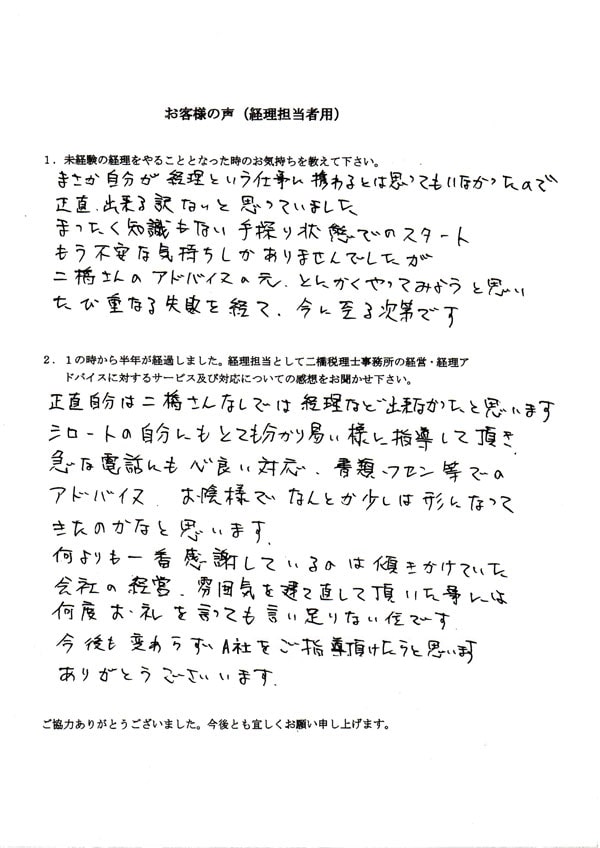 お客様の声（経理担当者用）
１．未経験の経理をやることとなった時のお気持ちを教えて下さい。
まさか自分が経理という仕事に携わるとは思ってもいなかったので
正直、出来る訳ないと思っていました
まったく知識もない手探り状態でのスタート
もう不安な気持ちしかありませんでしたが
二橋さんのアドバイスの元、とにかくやってみようと思い
たび重なる失敗を経て、今に至る次第です
２．１の時から半年が経過しました。経理担当として二橋税理士事務所の経営・経理ア
ドバイスに対するサービス及び対応についての感想をお聞かせ下さい。
正直自分は二橋さんなしでは経理など出来なかたと思います
シロートの自分にもとても分かり易い様に指導して頂き、
急な電話にも心良い対応、書類、フセン等での
アドバイス、お陰様でなんとか少しは形になって
きたのかなと思います。
何よりも一番感謝しているのは傾きかけていた
会社の経営、雰囲気を建て直して頂いた事には
何度お礼を言っても言い足りない位です。
今後も変わらずA社をご指導頂けたらと思います
ありがとうございます。
ご協力ありがとうございました。今後とも宜しくお願い申し上げます。